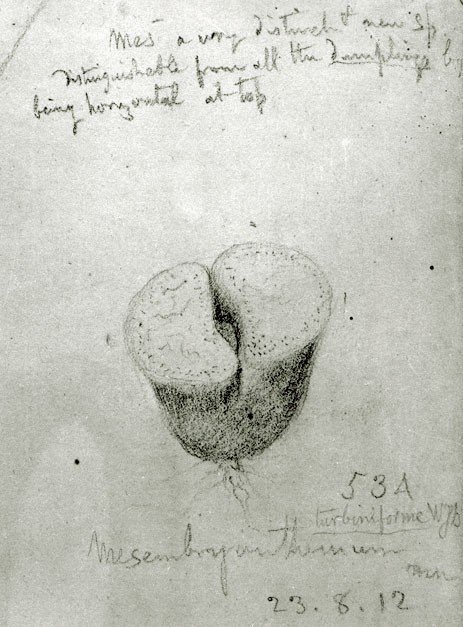 Mes a very distinct & new sp.
distinguishable from all the dumplings by
being horizontal at top
53A
turbiniforme WJB
Mesembryanthemum
23. 8. 12